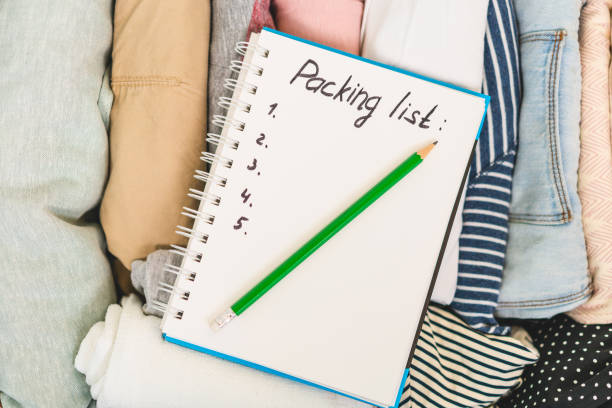 Packing list:
1.
2.
3.
4.
5.